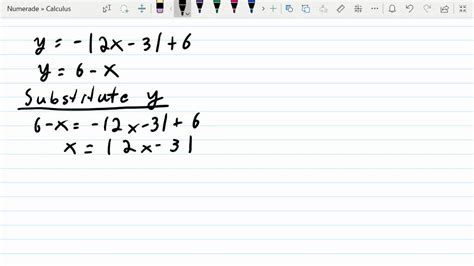 Numerade » Calculus
y = -|2x - 3| + 6
y = 6 - x
Substitute y
6 - x = -|2x - 3| + 6
x = |2x - 3|